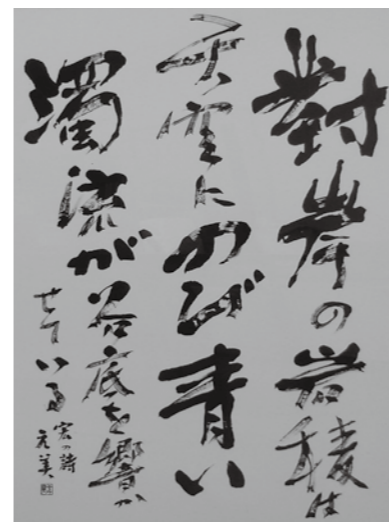 對岸の岩稜は
天空にのび青い
濁流が谷底を響か
せている
宏の詩
元美